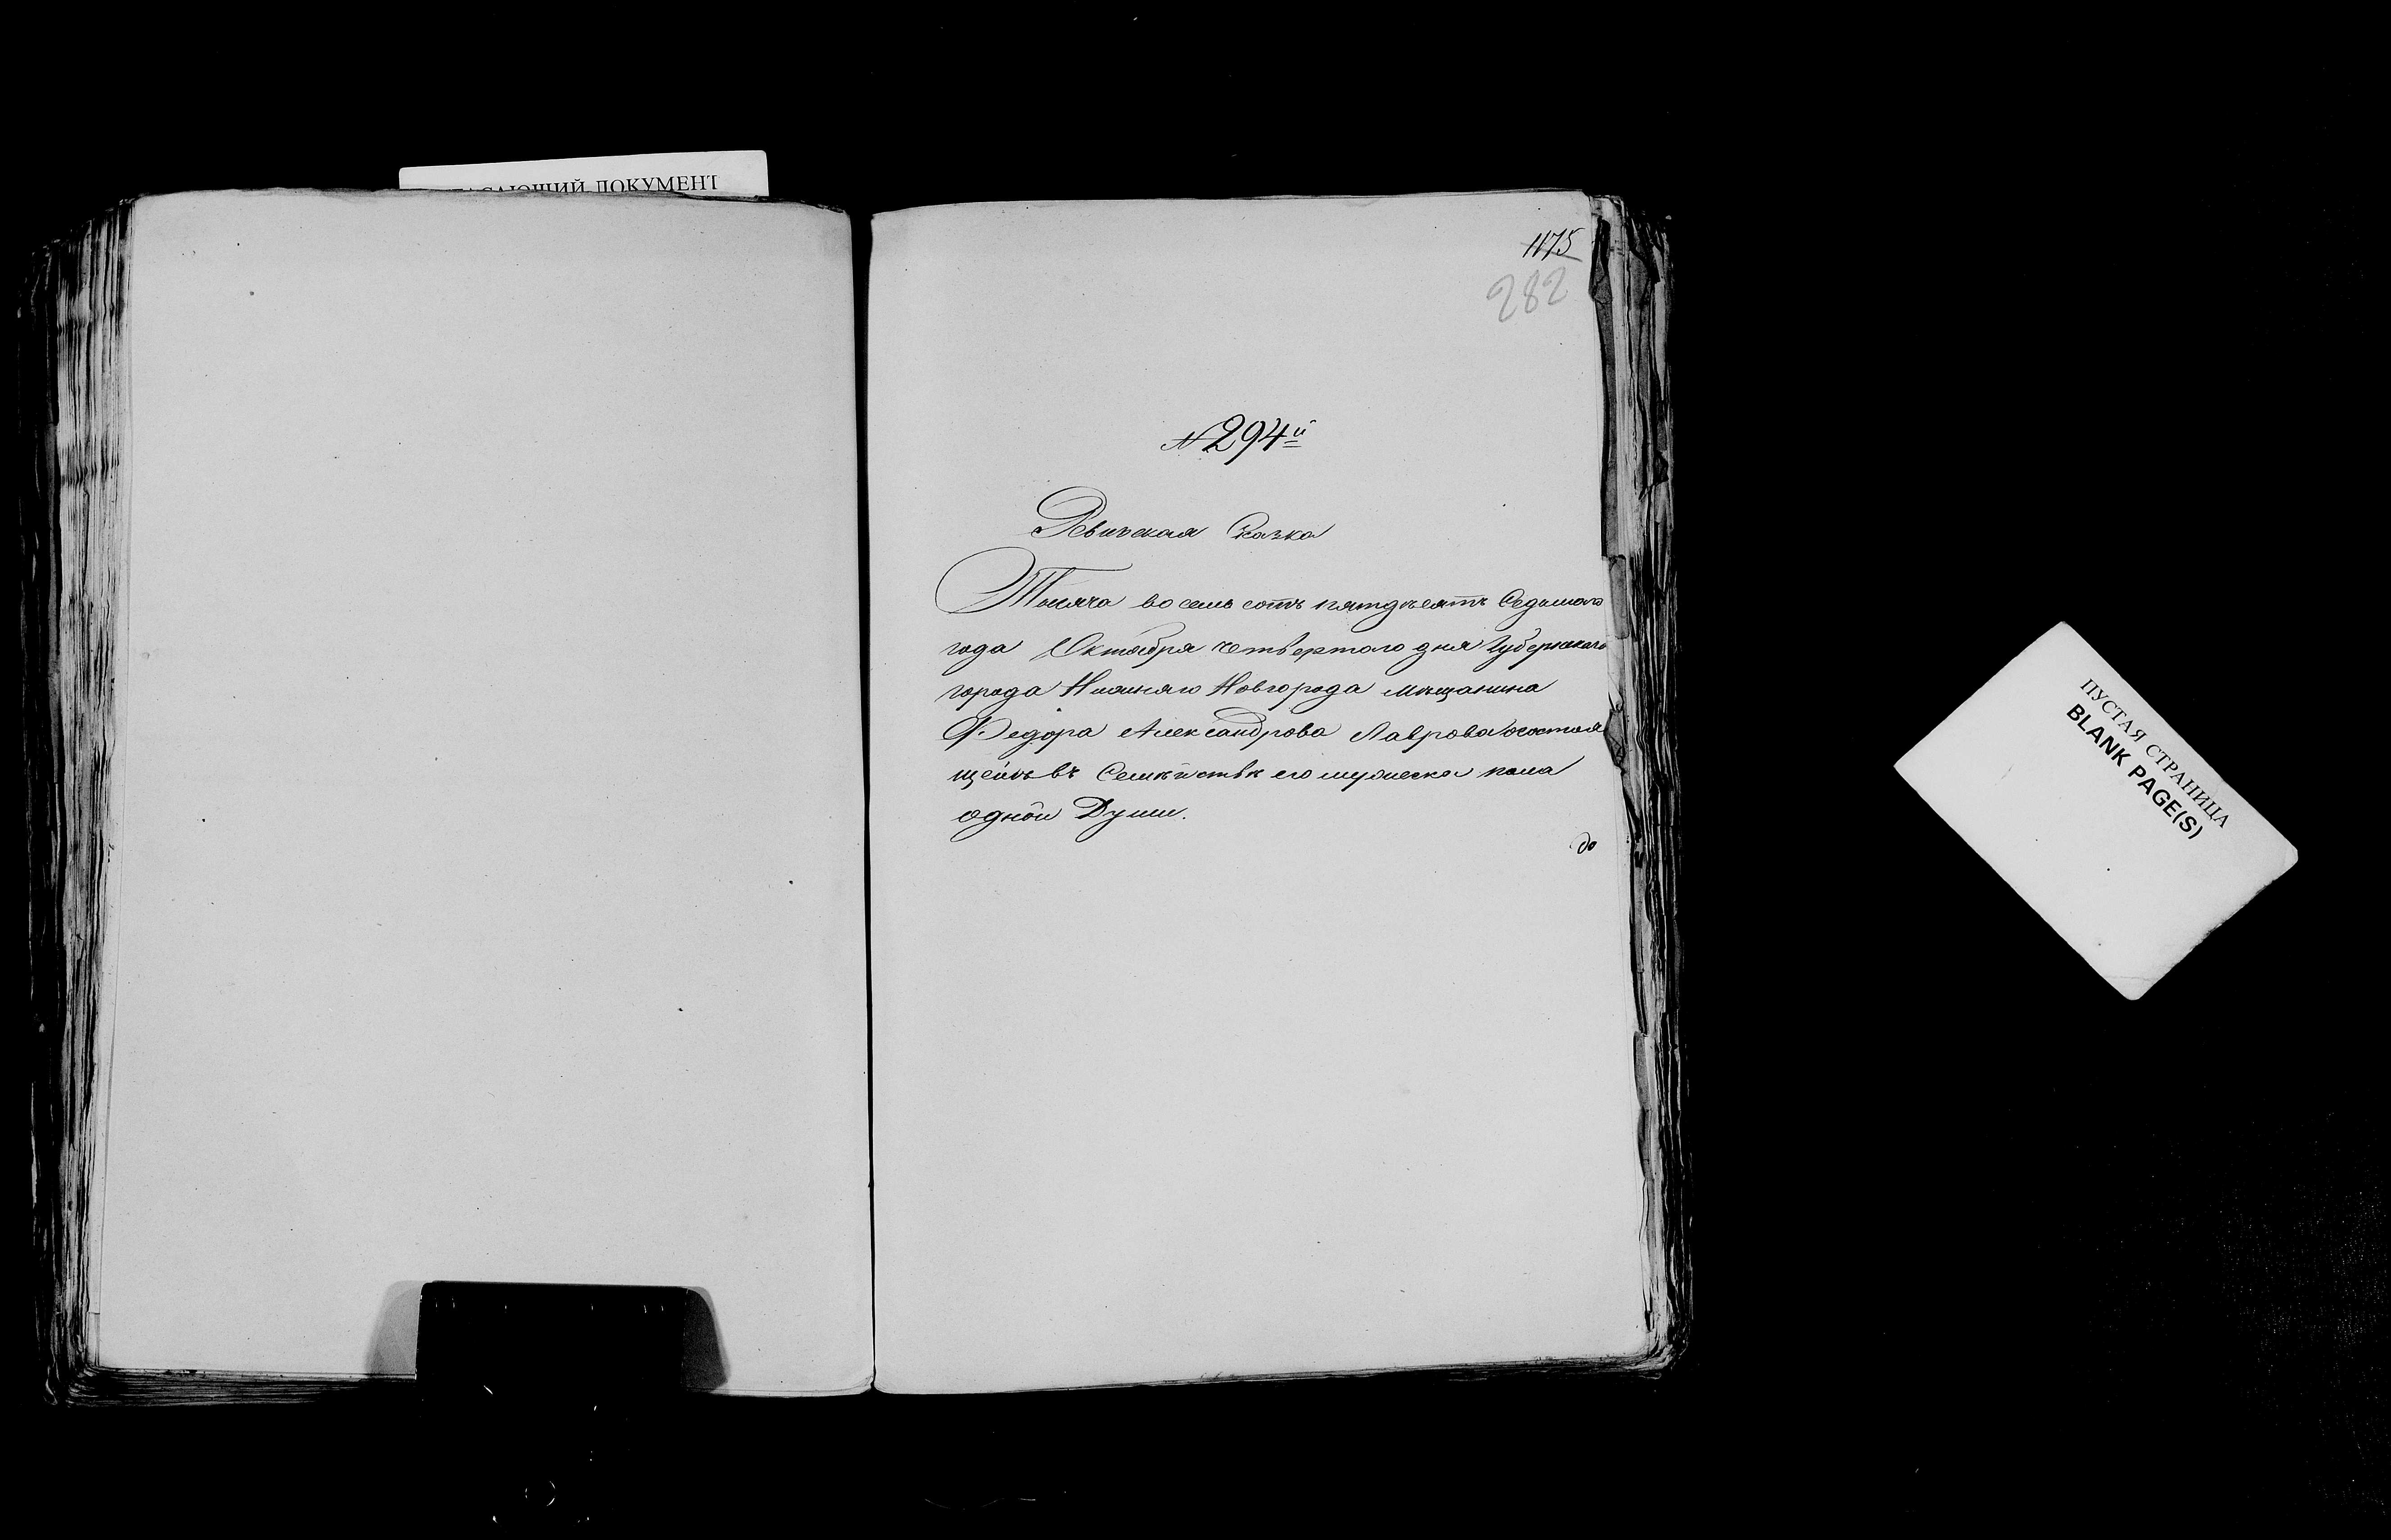 УГАСАЮЩИЙ ДОКУМЕНТ
1175
282
№ 294й
Ревижская Сказка
Тысяча восемь сотъ пятдѣсятъ Седьмаго
года Октября четвертаго дня Губернскаго
города Нижняго Новгорода мѣщанина
Федора Александрова Лаврова о состоя
щей въ Семѣйствѣ его мужеска пола
одной Души.
до
ПУСТАЯ СТРАНИЦА
BLANK PAGE(S)